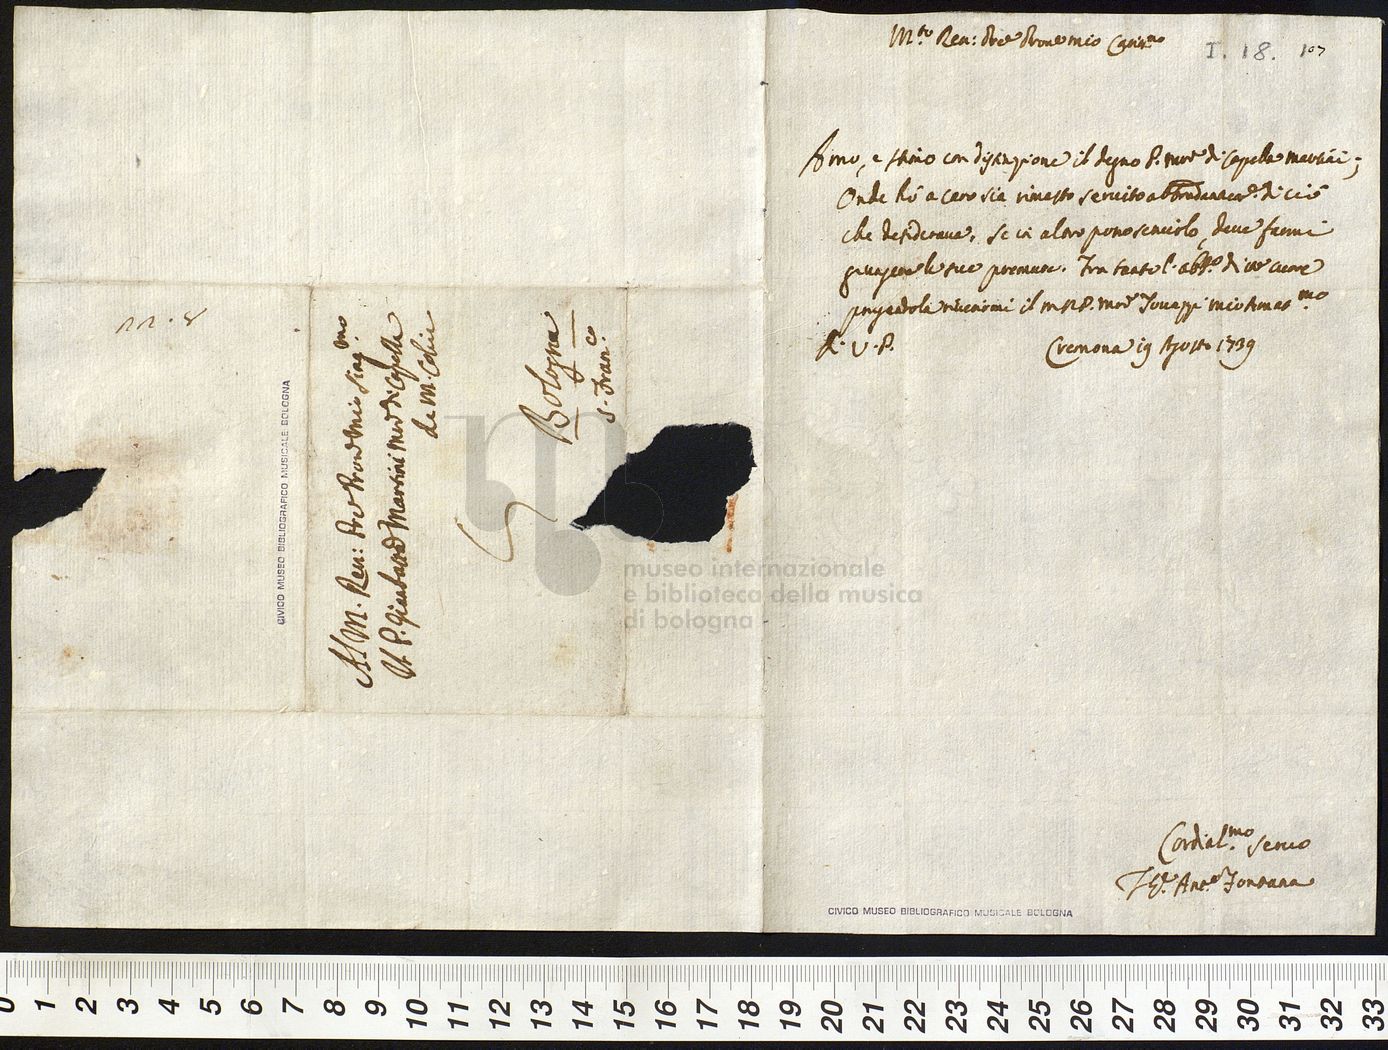 M.to Rev: Pre Prone mio Cariss.mo
I. 18. 107
Amo, e stimo con distinzione il degno P. Mro di Capella Martini;
Onde hò a caro sia rimasto servito abbondantem.e di ciò
che desiderava. Se in altro posso servirlo, deve farmi
giungere le sue premure. Fra tanto l'abb.o di vero cuore
pregandola riverirmi il M R P. Mro
D. V. P.
Cremona 19 Agosto 1739
Cordial.mo Servo
Ant.o Fontana
CIVICO MUSEO BIBLIOGRAFICO MUSICALE BOLOGNA
Al M. Rev: Pre Prone mio Sing.mo
Il P. Giambatta Martini Mro di Capella
de M. Con
Bologna
S. Fran.co
CIVICO MUSEO BIBLIOGRAFICO MUSICALE BOLOGNA
museo internazionale
e biblioteca della musica
di bologna
0 1 2 3 4 5 6 7 8 9 10 11 12 13 14 15 16 17 18 19 20 21 22 23 24 25 26 27 28 29 30 31 32 33